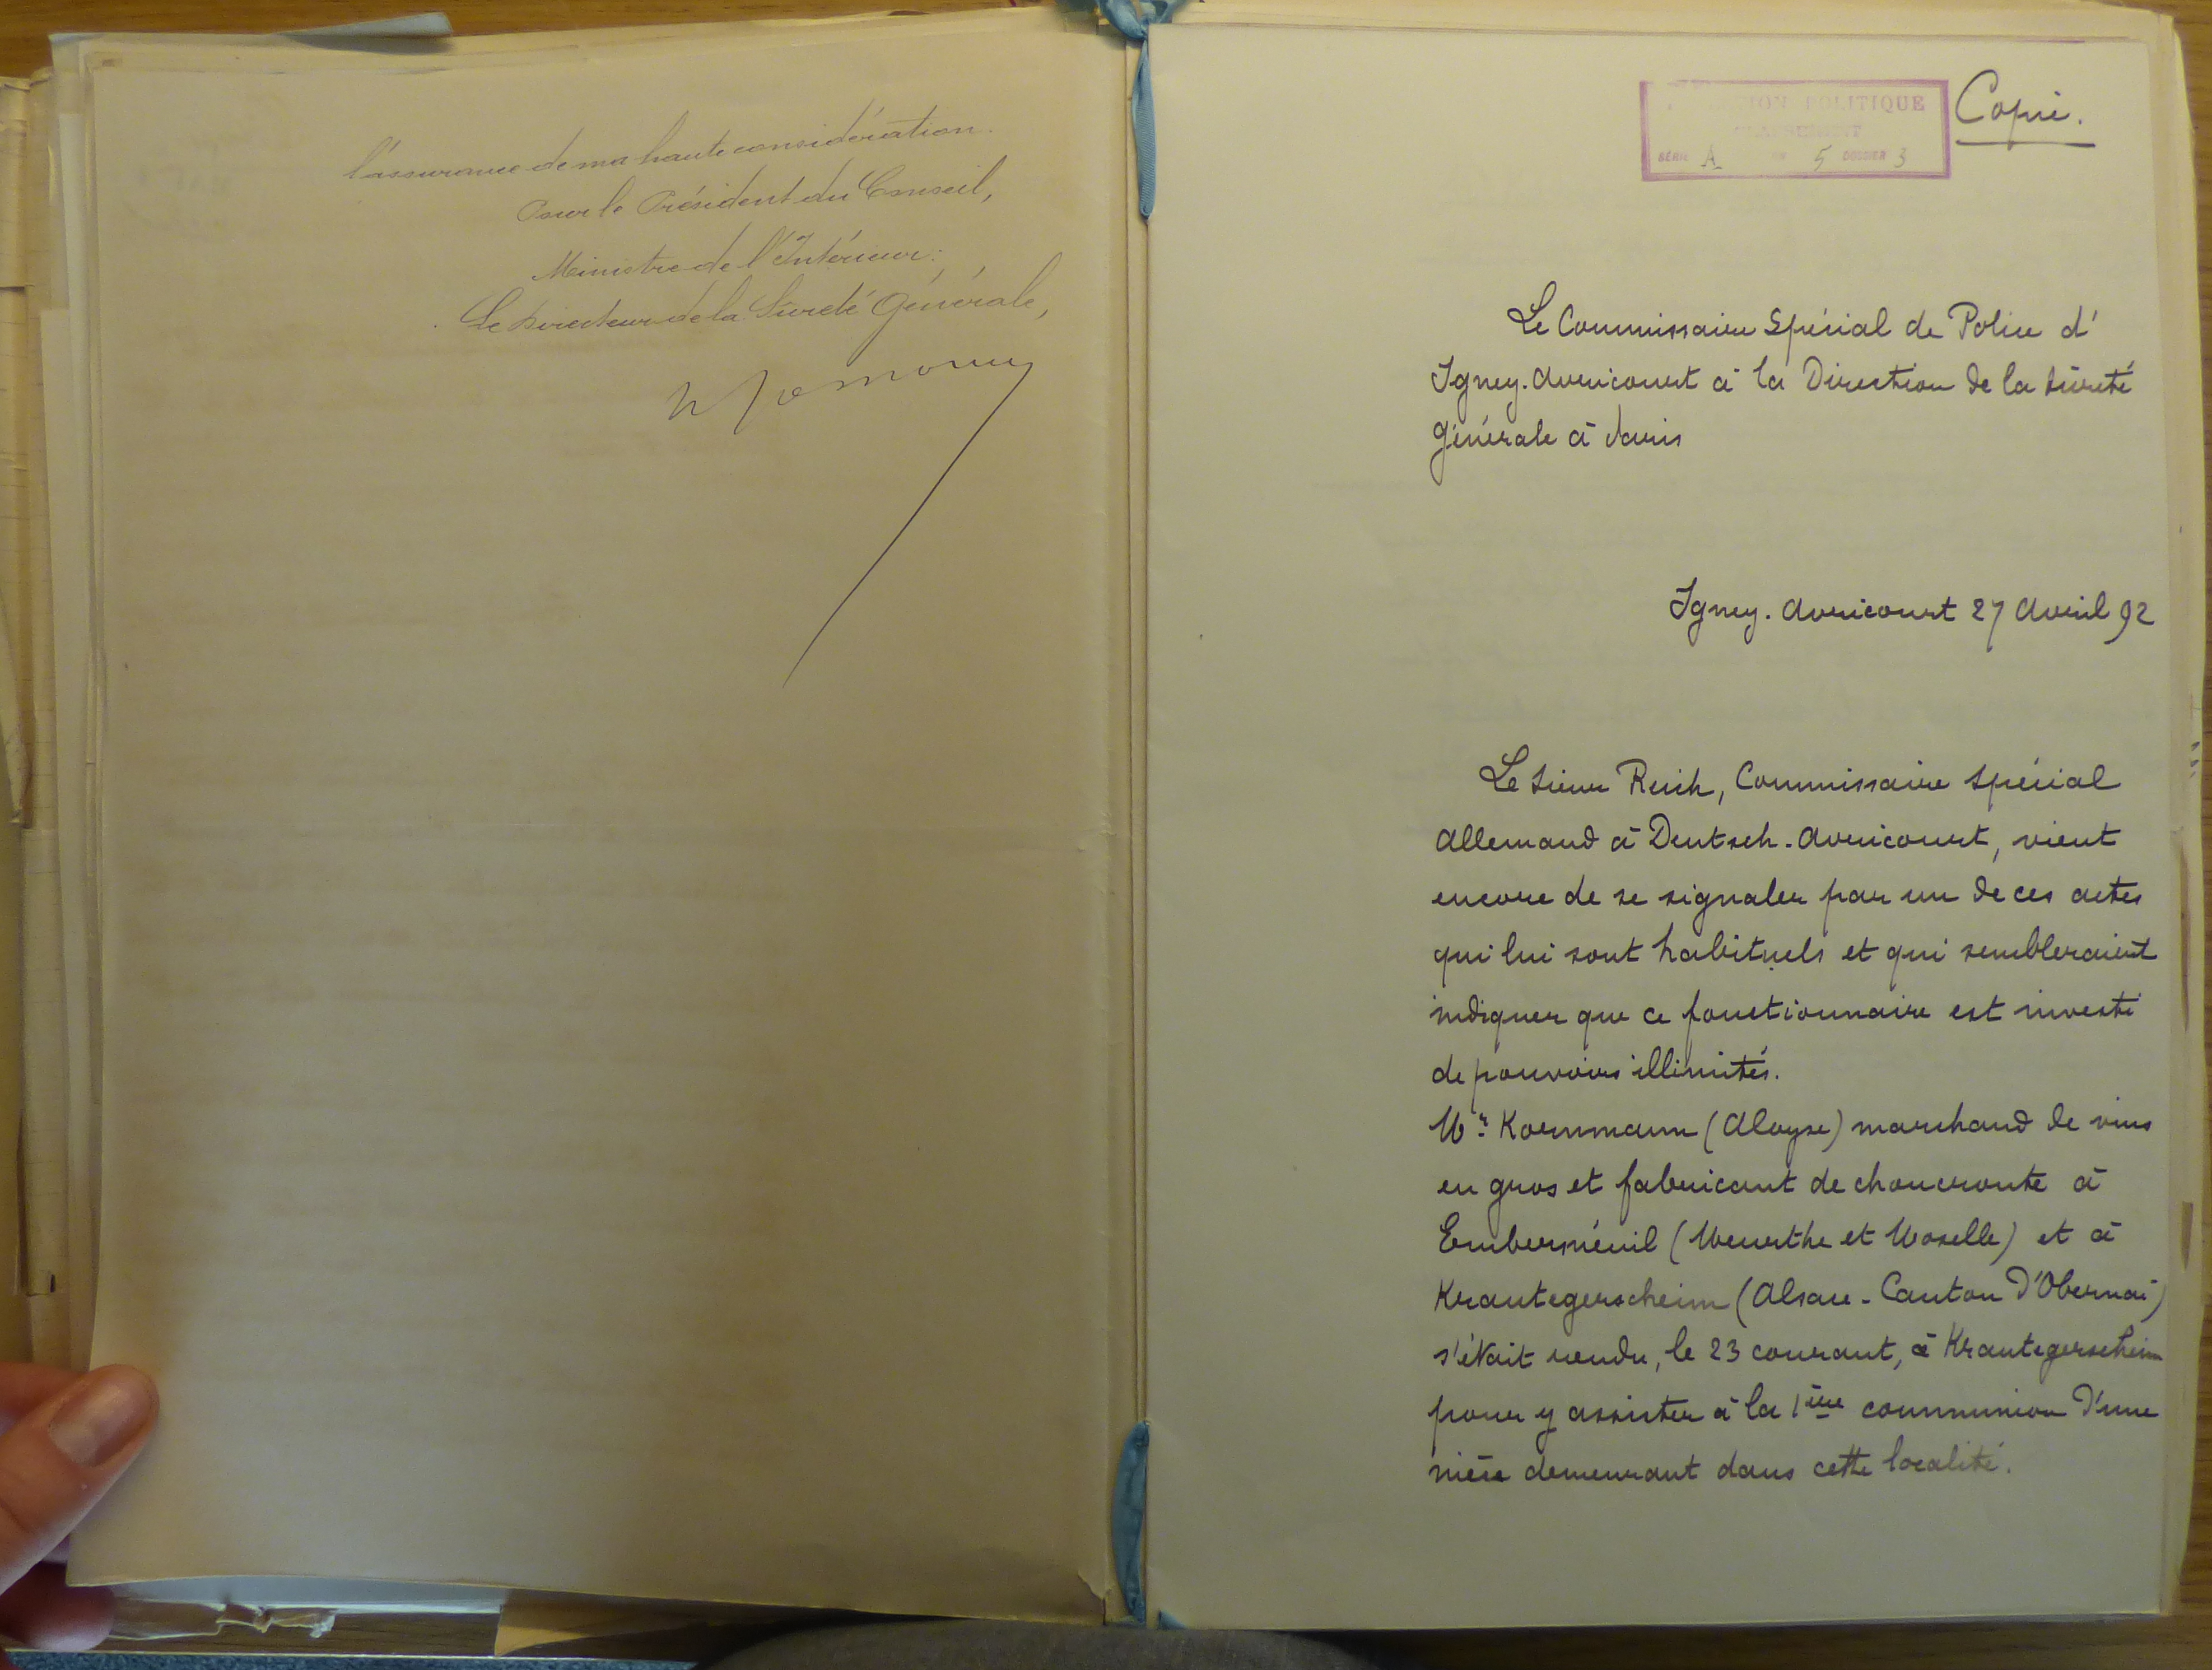 l'assurance de ma haute considération.
Pour le Président du Conseil,
Ministre de l'Intérieur:
Le Directeur de la Sureté Générale,
POLITIQUE
CLASSEMENT
SÉRIE A 5 DOSSIER 3
Copie.
Le Commissaire Spécial de Police d'
Igney-Avricourt à la Direction de la Sûreté
Générale à Paris
Igney-Avricourt 27 Avril 92
Le Sieur Reich, Commissaire Spécial
Allemand à Deutsch-Avricourt, vient
encore de se signaler par un de ces actes
qui lui sont habituels et qui sembleraient
indiquer que ce fonctionnaire est investi
de pouvoirs illimités.
Mr. Kornmann (Aloyse) marchand de vins
en gros et fabricant de choucroute à
Emberménil (Meurthe et Moselle) et à
Krautegerscheim (Alsace-Canton d'Obernai)
s'était rendu, le 23 courant, à Krautegerscheim
pour y assister à la 1ère communion d'une
nièce demeurant dans cette localité.